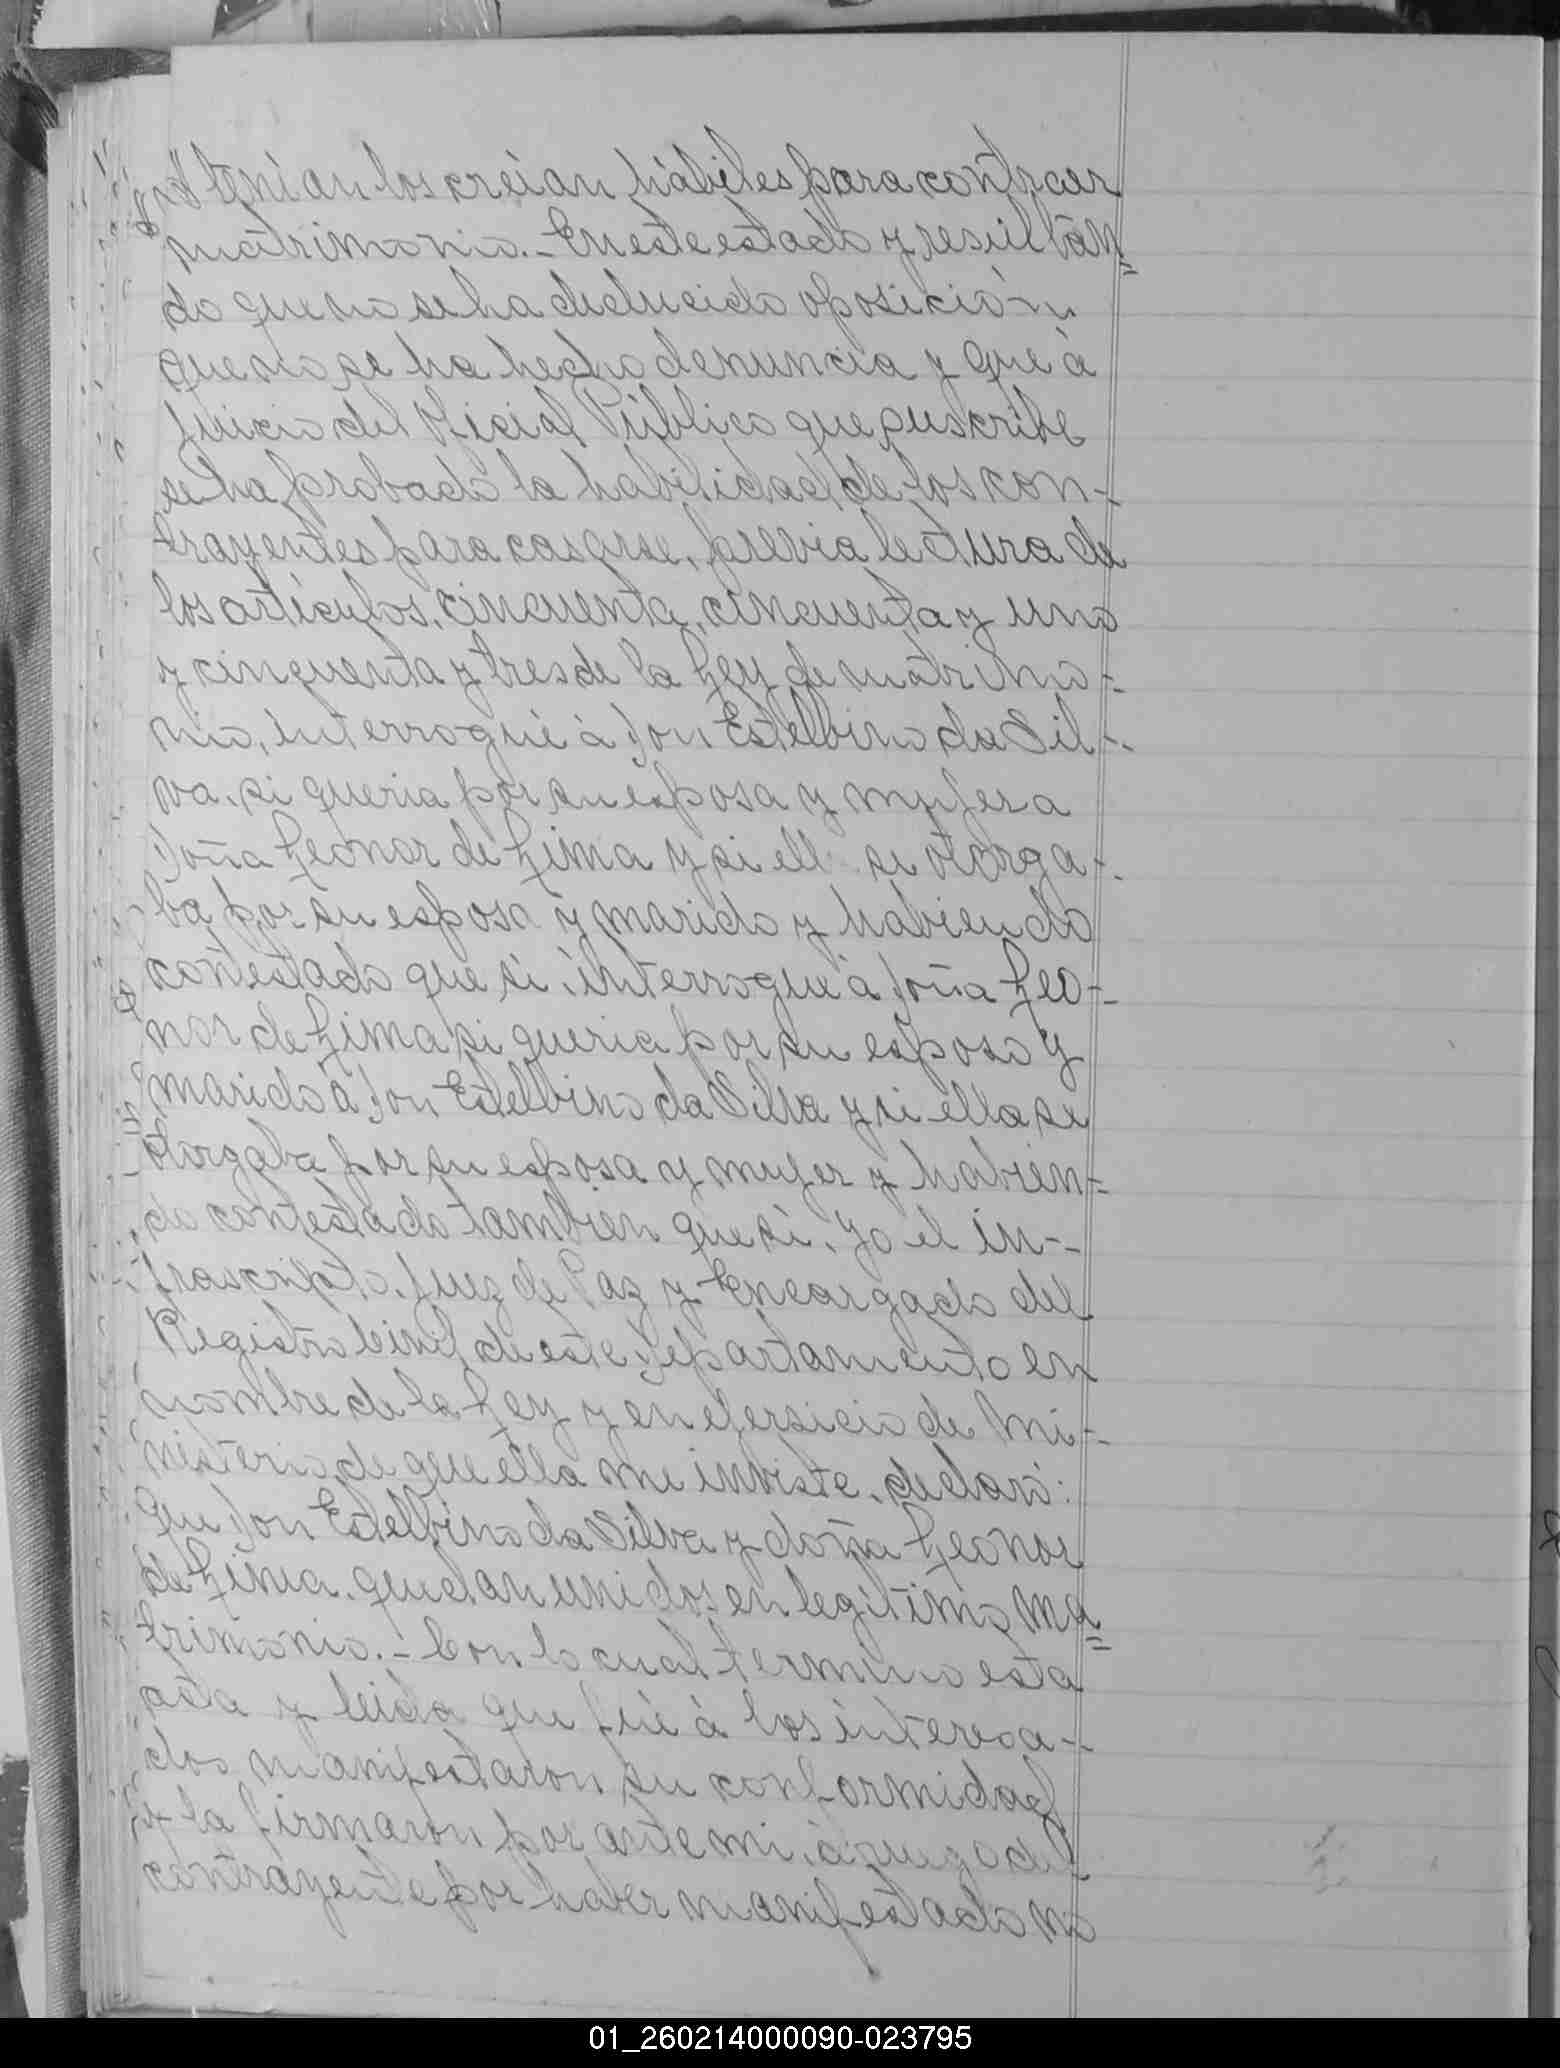 tenian los creian hábiles para contraer
matrimonio.- En este estado y resultan=
do que no se ha deducido oposición
que no se ha hecho denuncia y que á
juicio del Oficial Público que suscribe
se ha probado la habilidad de los con-
trayentes para casarse, previa lectura de
los artículos, cincuenta, cincuenta y uno
y cinquenta y tres de la Ley de matrimo-
nio, interrogué á Don Estelbino da Sil-
va, si queria por su esposa y mujer a
Doña Leonor de Lima y si el se otorga-
ba por su esposo y marido y habiendo
contestado que si, interrogué á Doña Leo-
nor de Lima si queria por su esposo y
marido a Don Estelbino da Silva y si ella se
otorgaba por su esposa y mujer y habien-
do contestado tambien que si, yo el in--
frascripto, Juez de Paz y Encargado del
Registro Civil de este Departamento en
nombre de la Ley y en ejersicio de mi-
nisterio de que ella me inviste, declaro:
Que Don Estelbino da Silva y doña Leonor
de Lima, quedan unidos en legitimo ma=
trimonio.- Con lo cual termino esta
acta y leida que fué á los interesa-
dos manifestaron su conformidad
y la firmaron por ante mi, á ruego del
contrayente por haber manifestado no
01_260214000090-023795